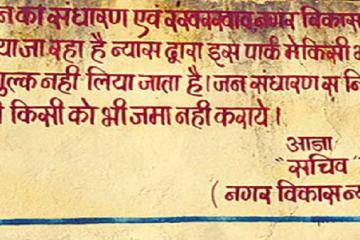 न का संधारण एवं रखरखाव नगर विकास
या जा रहा है न्यास द्वारा इस पार्क मे किसी
ुल्क नही लिया जाता है। जन संधारण स नि
किसी को भी जमा नही कराये।
आज्ञा
"सचिव"
( नगर विकास न्य